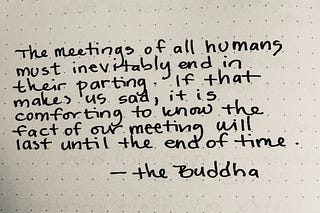 The meetings of all humans
must inevitably end in
their parting. If that
makes us sad, it is
comforting to know the
fact of our meeting will
last until the end of time.
— the Buddha